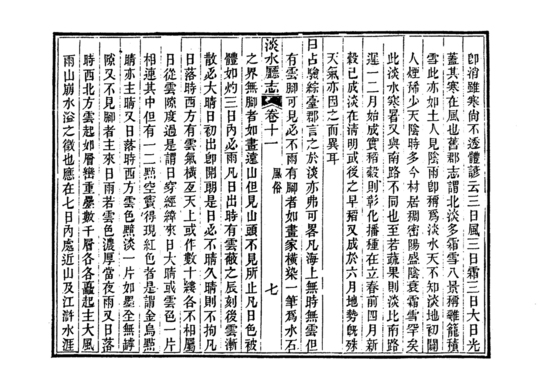 卽消雖寒尚不透體諺云三日風三日霜三日大日光
蓋其寒在風也舊郡志謂北淡多霜雪八景稱雞籠積
雪此亦如土人見陰雨卽稱爲淡水天不知淡地初闢
人煙稀少天陰時多今村居稠密陽盛陰衰霜雪罕矣
此淡水寒暑又與南路不同也至若蔬果則淡比南路
遲一二月始成實稻穀則彰化播種在立春前四月新
穀已成淡在清明或後之早稻又成於六月地勢旣殊
天氣亦因之而異耳
曰占驗綜臺郡言之於淡亦弗可畧凡海上無時無雲但
有雲腳可見必不雨有腳者如畫家橫染一筆爲水石
淡水廳志 卷十一 風俗 七
之界無腳者如畫遠山但見山頭不見所止凡日色被
體如灼三日內必雨凡日出時有雲蔽之辰刻後雲漸
散必大晴日初出卽開朗是日必不晴久晴則不拘凡
日落時西方有雲氣橫亙天上或作數十縷各不相屬
日從雲隙度過是謂日穿經緯來日大晴或雲色一片
相連其中但有一二點空竇得現紅色者是謂金烏點
睛亦主晴又日落時西方雲色黯淡一片如墨全無罅
隙又不見腳者主來日雨若雲色濃厚當夜雨又日落
時西北方雲起如層巒重疊數千層各各矗起主大風
雨山崩水溢之徵也應在七日內處近山及江滸水涯